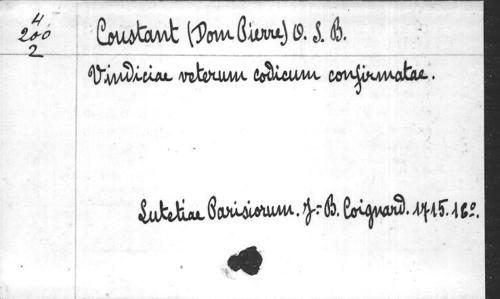 4
200
2
Coustant (Dom Pierre) O. S. B.
Vindiciae veterum codicum confirmatae.
Lutetiae Parisiorum. J.-B. Coignard. 1715. 16º.